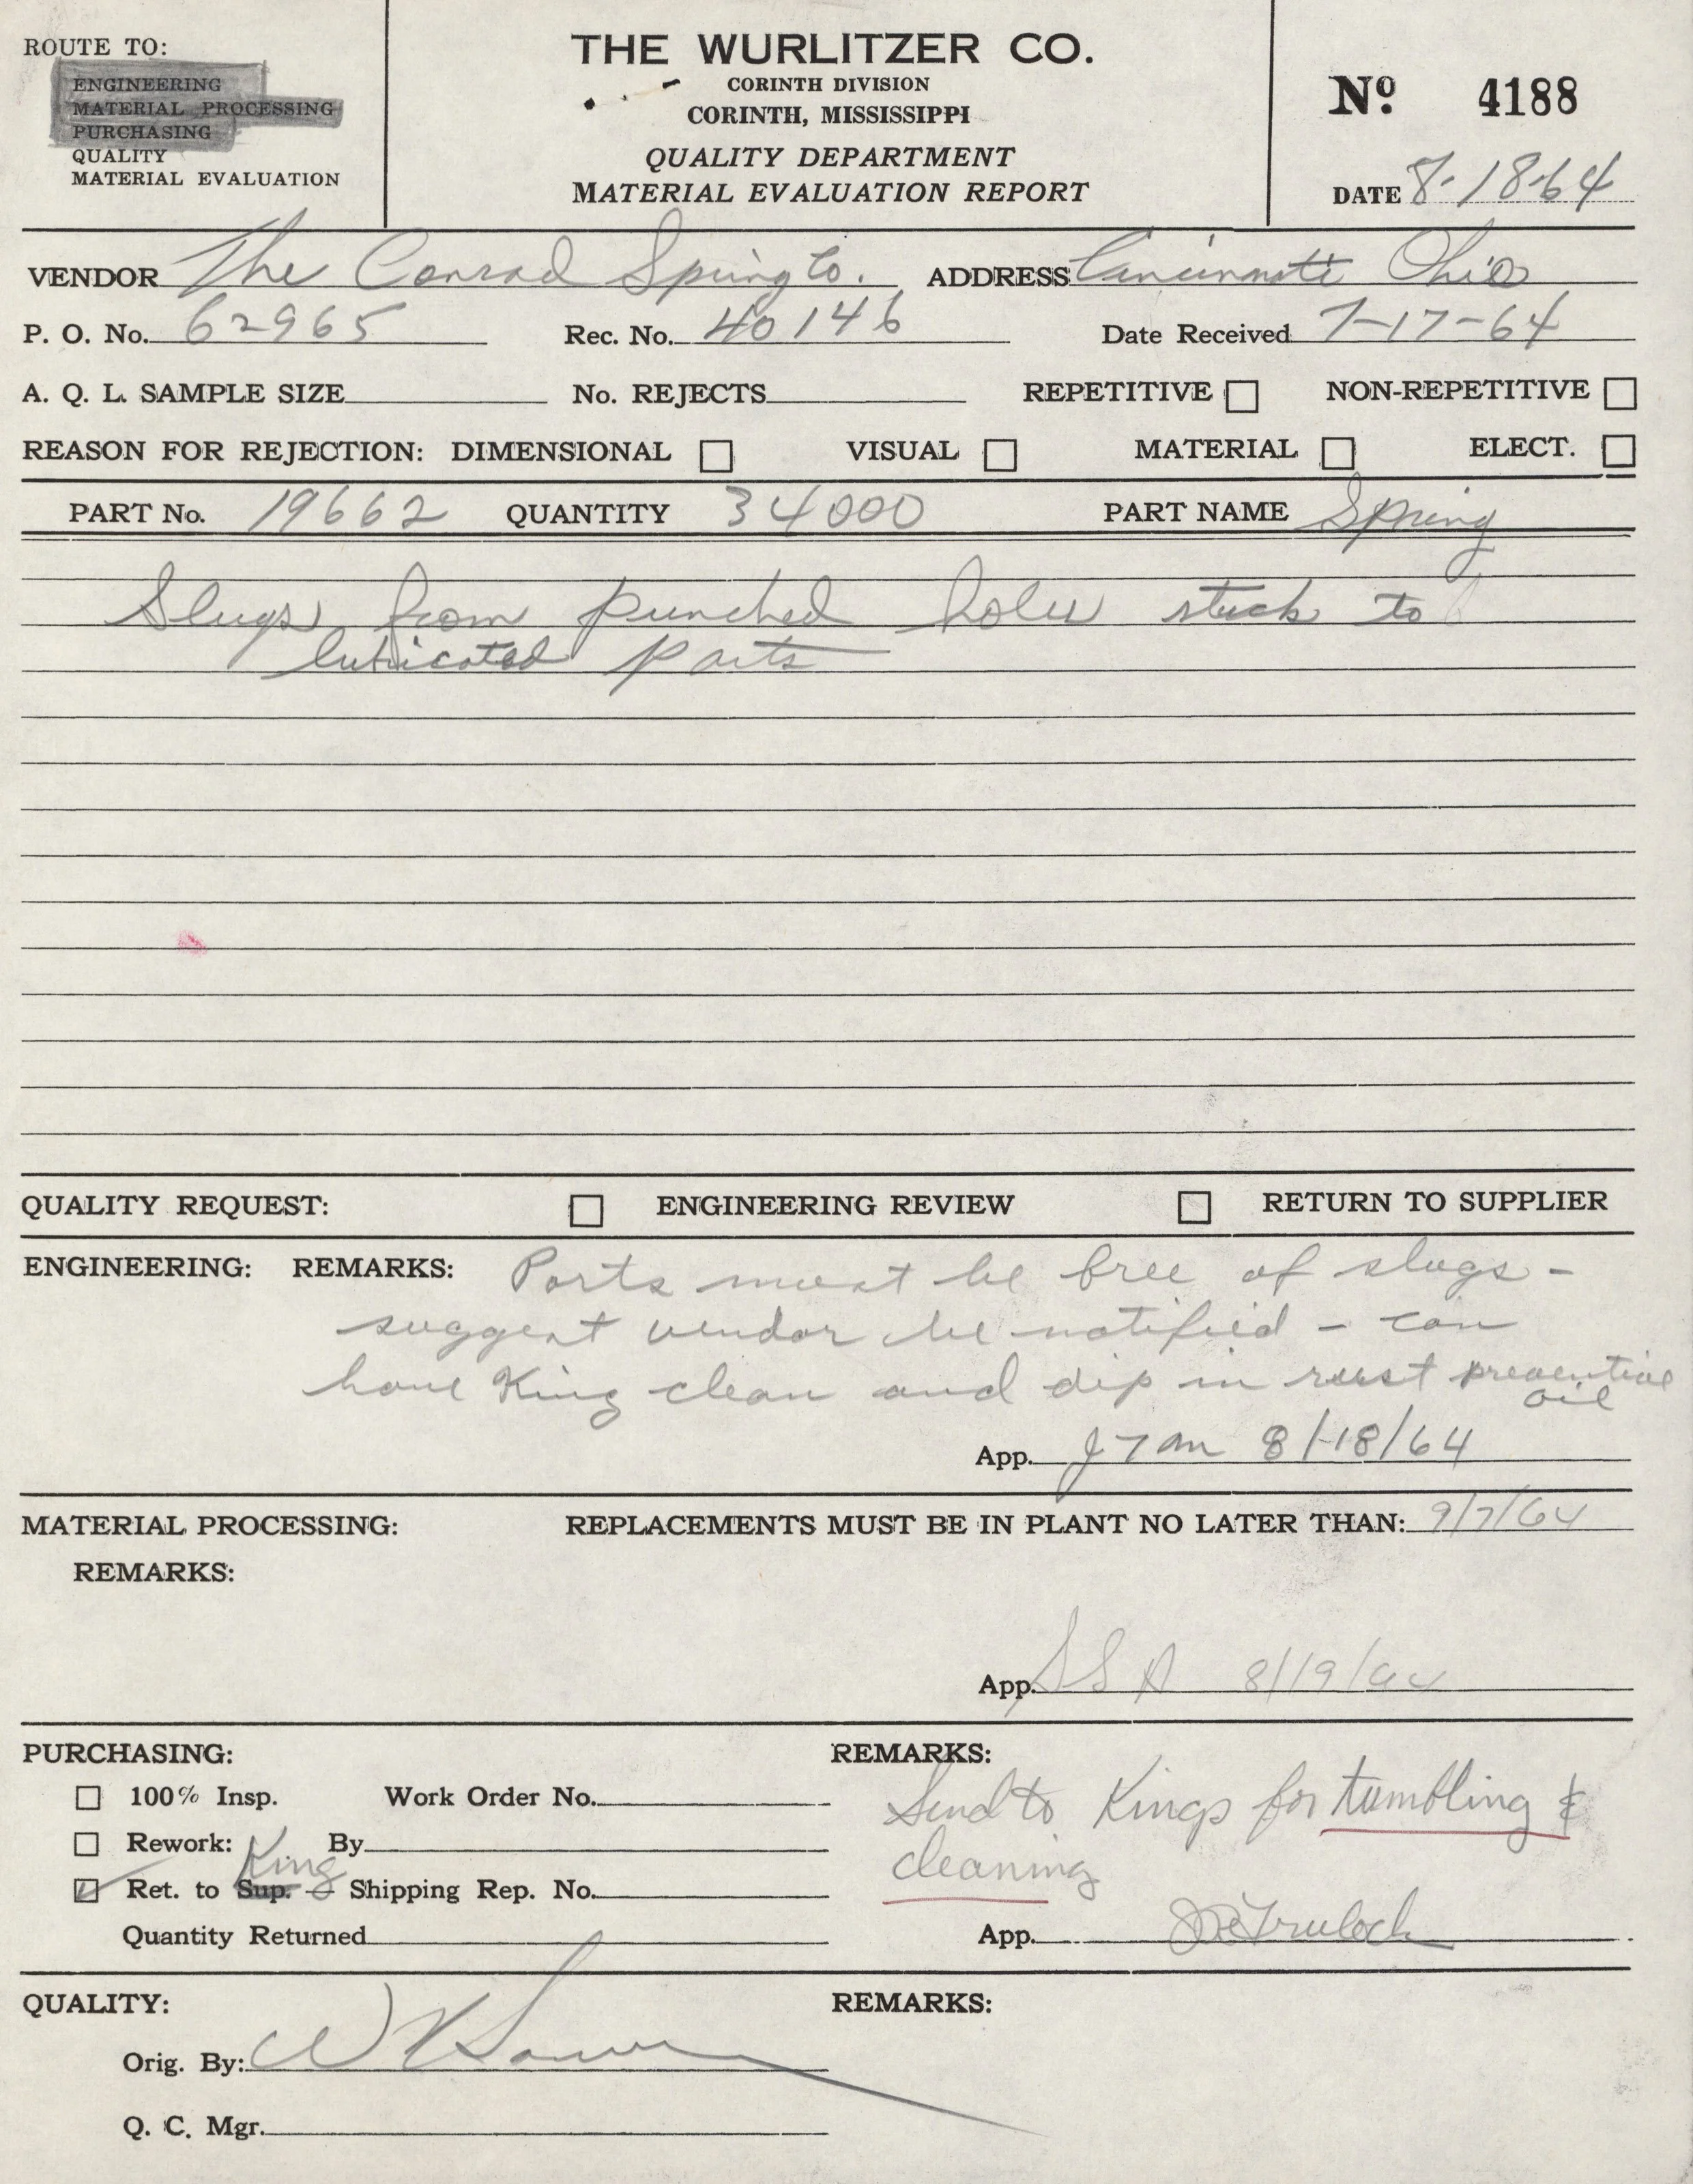 ROUTE TO:
ENGINEERING
MATERIAL PROCESSING
PURCHASING
QUALITY
MATERIAL EVALUATION
THE WURLITZER CO.
CORINTH DIVISION
CORINTH, MISSISSIPPI
QUALITY DEPARTMENT
MATERIAL EVALUATION REPORT
Nº 4188
DATE 8-18-64
VENDOR The Conrad Spring Co. ADDRESS Cincinnati Ohio
P. O. No. 62965 Rec. No. 40146 Date Received 7-17-64
A. Q. L. SAMPLE SIZE No. REJECTS REPETITIVE NON-REPETITIVE
REASON FOR REJECTION: DIMENSIONAL VISUAL MATERIAL ELECT.
PART No. 19662 QUANTITY 34000 PART NAME Spring
Slugs from punched holes stuck to
lubricated parts
QUALITY REQUEST: ENGINEERING REVIEW RETURN TO SUPPLIER
ENGINEERING: REMARKS: Parts must be free of slugs -
suggest vendor be notified - can
have King clean and dip in rust preventive
oil
App. 8/18/64
MATERIAL PROCESSING: REPLACEMENTS MUST BE IN PLANT NO LATER THAN: 9/7/64
REMARKS:
App. 8/19/64
PURCHASING: REMARKS:
100% Insp. Work Order No. Send to Kings for tumbling &
Rework: By cleaning
King
Ret. to Sup. — Shipping Rep. No.
Quantity Returned App.
QUALITY: REMARKS:
Orig. By:
Q. C. Mgr.